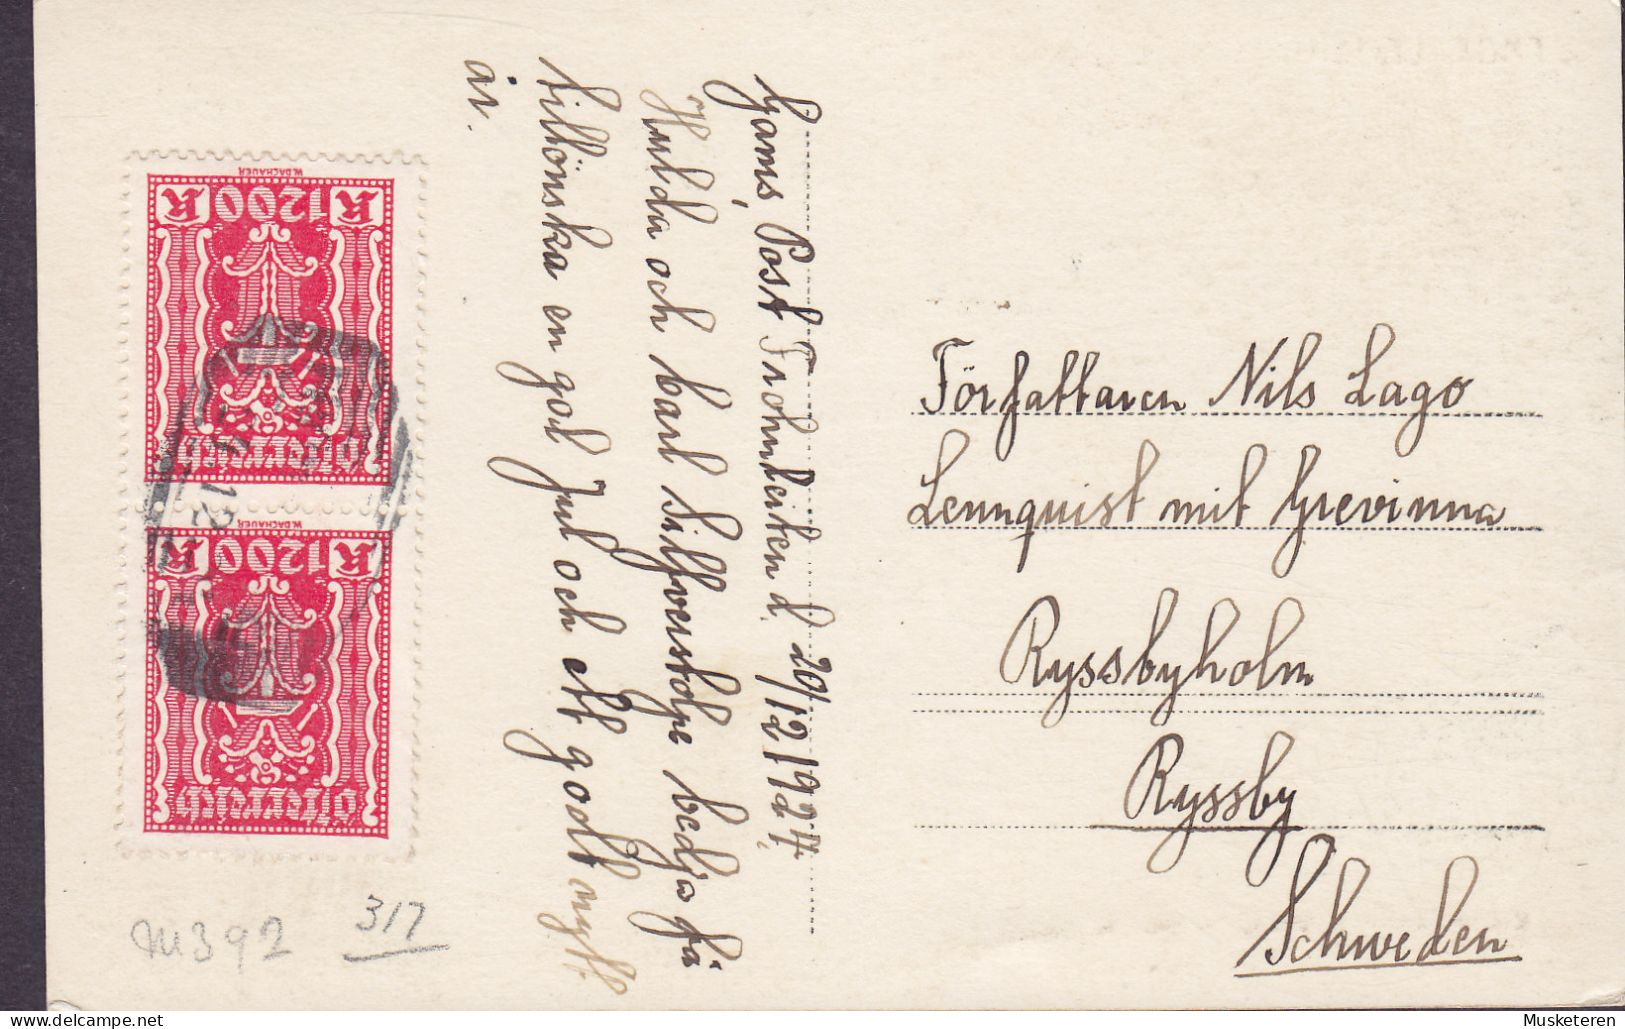 Gams, Post Frohnleiten d. 20/12 1924.
Hulda och Carl Silfverstolpe bedja få
tillönska en god Jul och ett godt nytt
år.
Författaren Nils Lago
Lennquist mit Grevinna
Ryssbyholm
Ryssby
Schweden
W. DACHAUER
K 1200 K
Österreich
12
W. DACHAUER
K 1200 K
Österreich
M 392
317
Musketeren